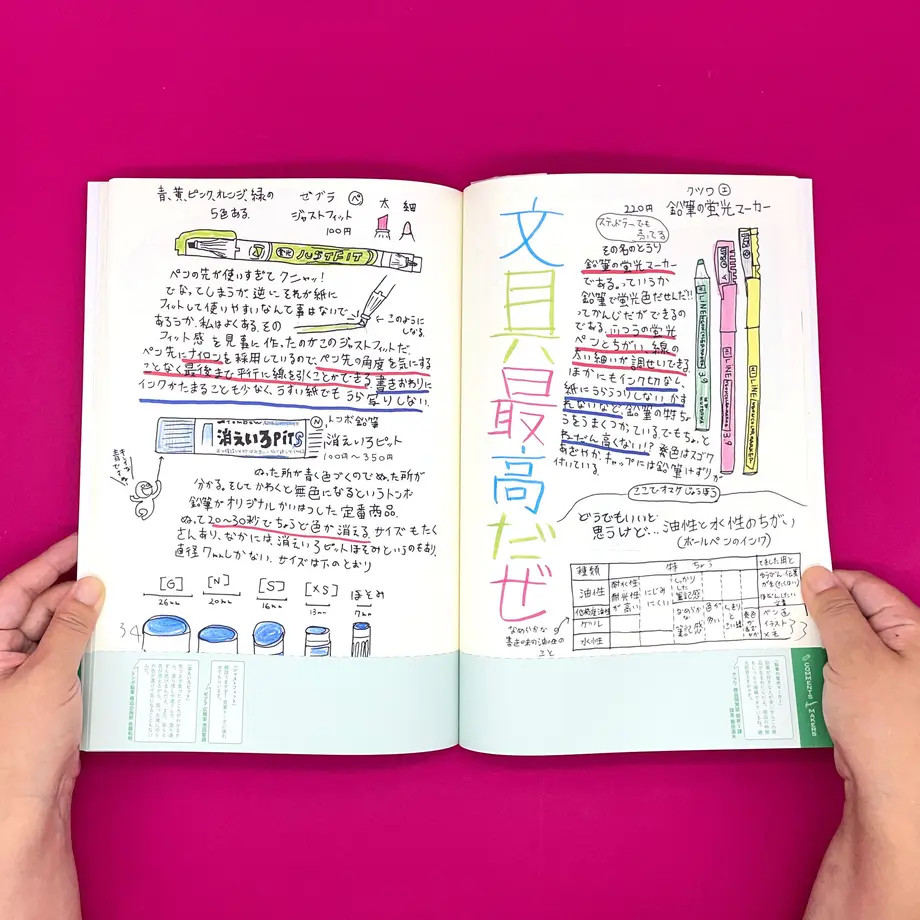 青、黄、ピンク、オレンジ、緑の
5色ある。
ゼブラ ペ
ジャストフィット
100円
太 細
JUSTFIT
ペンの先が使いすぎてクニャッ!
でなってしまうが、逆にそれが紙に
フィットして使いやすいなんて事はないで
あろうか。私はよくある。その
フィット感を見事に作ったのがこのジャストフィットだ。
ペン先にナイロンを採用しているので、ペン先の角度を気にする
ことなく最後まで平行に線を引くことができる。書きおわりに
インクがたまることも少なく、うすい紙でもうら写りしない。
←このように
しなる。
消えいろPiTS
N、トンボ鉛筆
消えいろピット
100円〜350円
ぬった所が青く色づくのでぬった所が
分かる。そしてかわくと無色になるというトンボ
鉛筆がオリジナルかいはつした定番商品。
ぬって20〜30秒でちょうど色が消える。サイズもたく
さんあり、なかには消えいろピットほそみというのもあり、
直径7mmしかない。サイズは下のとおり
[G] [N] [S] [XS] ほそみ
26mm 20mm 16mm 13mm 7mm
34
文具最高だぜ
クツワ エ
220円 鉛筆の蛍光マーカー
ステッドラーでも
売ってる
その名のとうり
鉛筆の蛍光マーカー
である。っていうか
鉛筆で蛍光色だせんだ!!
ってかんじだができるの
である。ふつうの蛍光
ペンとちがい、線の
太い細いが調せいできる。
ほかにもインク切なし、
紙にうらうつりしない、かす
れないなど、鉛筆の特ちょ
うをうまくつかっている。でもちょっと
ねだん高くない!?発色はスゴク
あざやか。キャップには鉛筆けずりが
付いている。
ここでオマケじょうほう
どうでもいいと
思うけど…油性と水性のちがい
(ボールペンのインク)
種類 特ちょう てきした用と
油性 耐水性 耐光性が高い にじみにくい しっかりした筆記感
低粘度油性 なめらかな筆記感
ゲル
水性
33
なめらかな
書き味の油性の
こと
COMMENTS for MAKERS